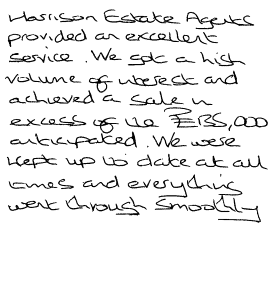 Harrison Estate Agents
provided an excellent
service. We got a high
volume of interest and
achieved a sale in
excess of the £85,000
anticipated. We were
kept up to date at all
times and everything
went through smoothly